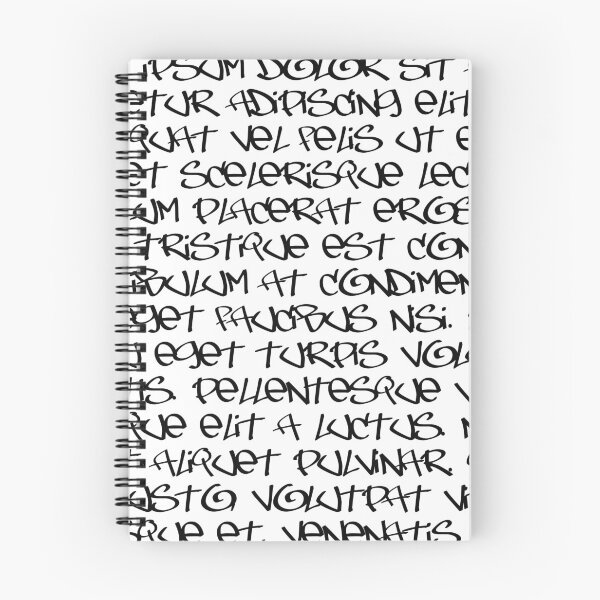 IPSUM DOLOR SIT
TUR ADIPISCING ELIT
QUAT VEL FELIS UT E
T SCELERISQUE LEC
UM PLACERAT EROS
TRISTIQUE EST CON
IBULUM AT CONDIMEN
GET FAUCIBUS NISI.
EGET TURPIS VOL
IS. PELLENTESQUE V
QUE ELIT A LUCTUS. N
ALIQUET PULVINAR.
USTO, VOLUTPAT VI
QUE ET, VENENATIS